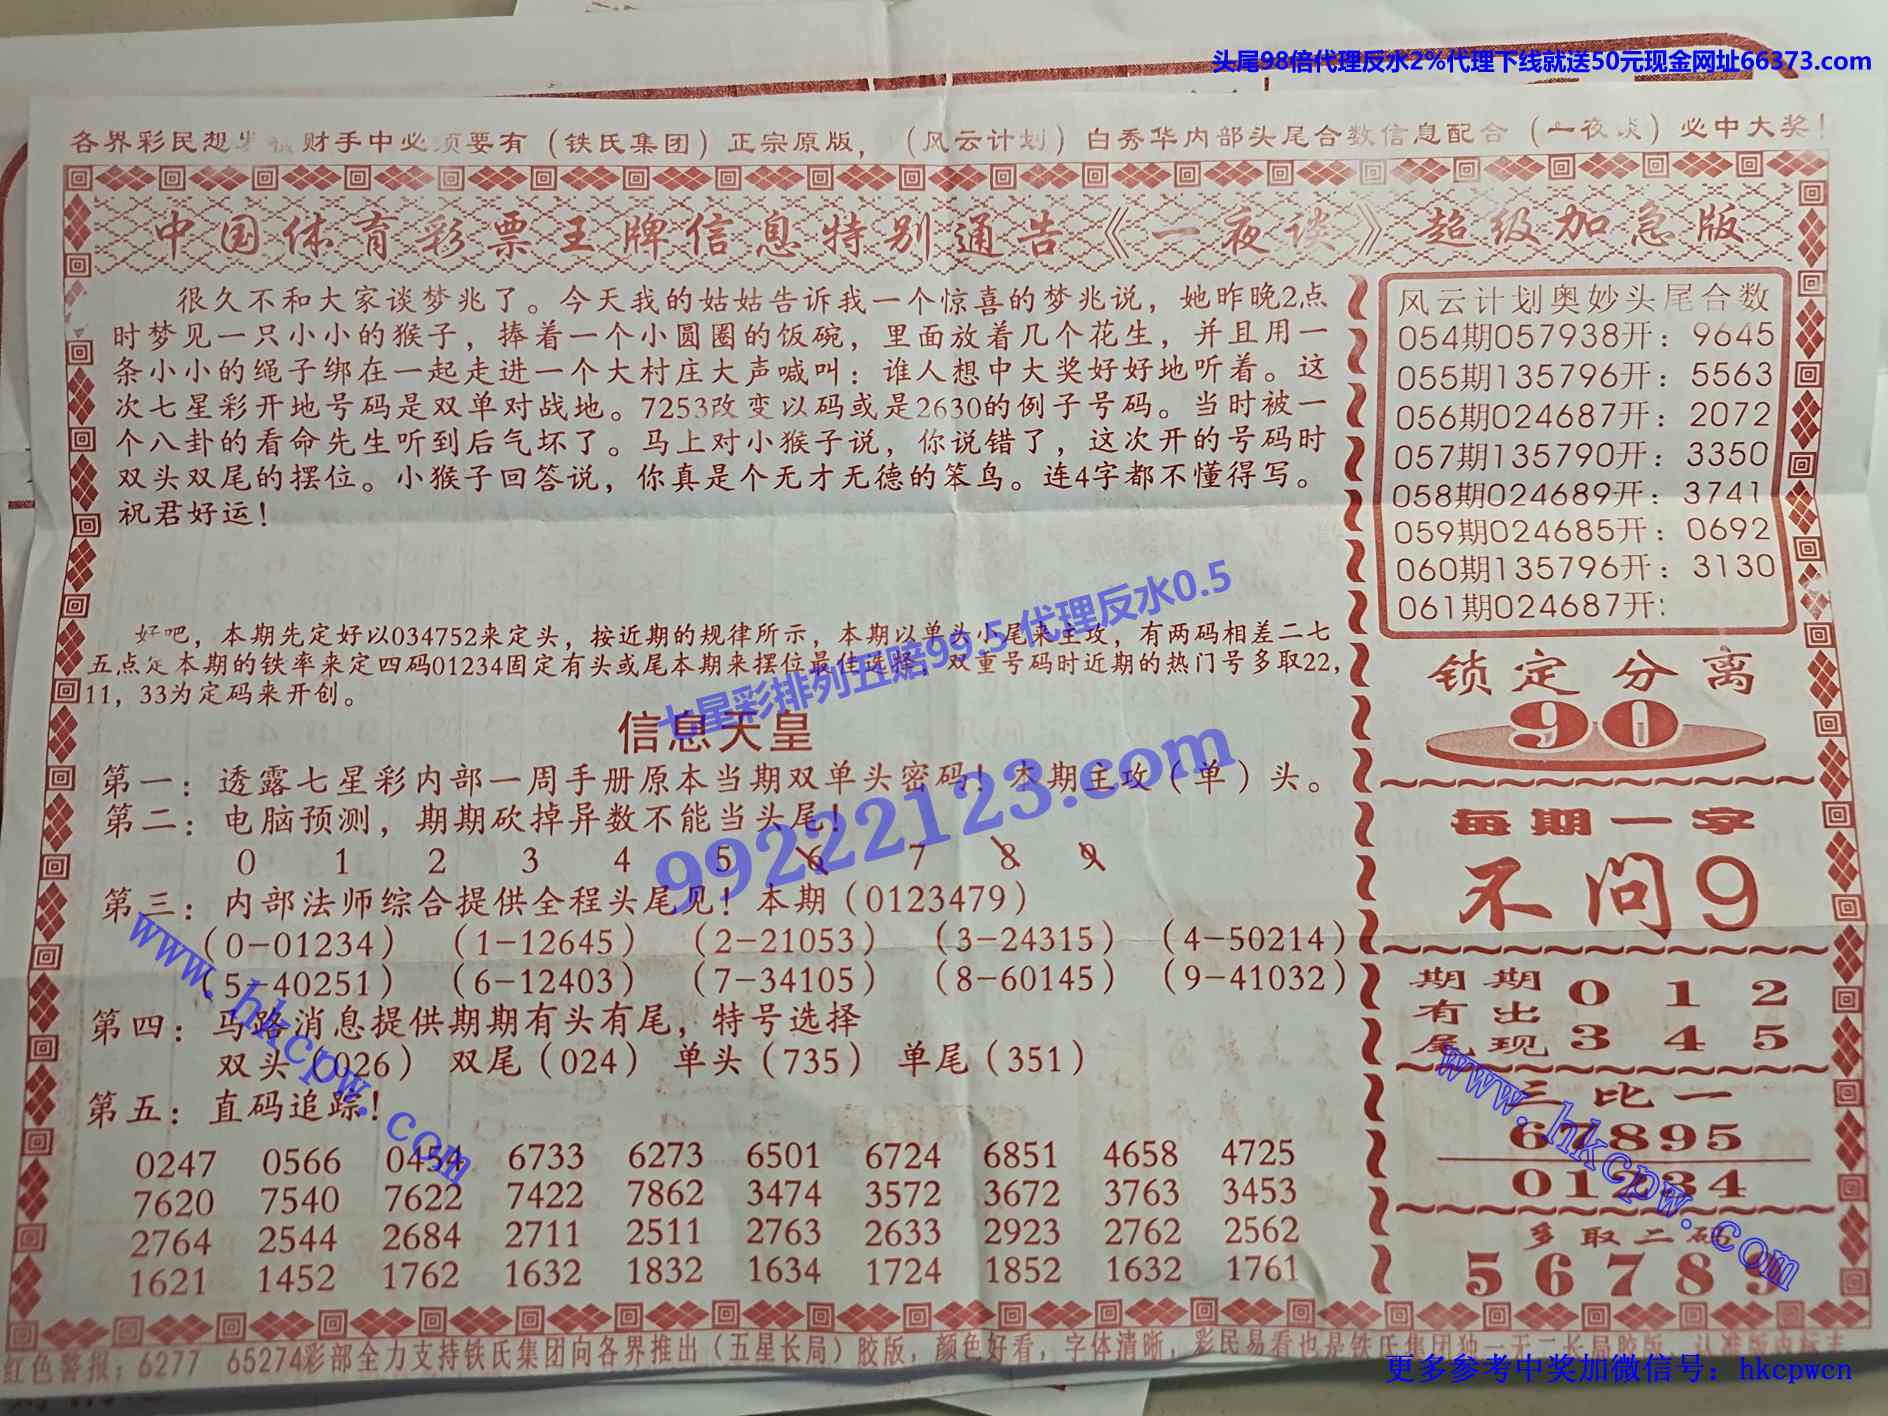 头尾98倍代理反水2%代理下线就送50元现金网址66373.com
各界彩民想 财手中必须要有（铁氏集团）正宗原版，（风云计划）白秀华内部头尾合数信息配合（一夜谈）必中大奖！
中国体育彩票王牌信息特别通告《一夜谈》超级加急版
很久不和大家谈梦兆了。今天我的姑姑告诉我一个惊喜的梦兆说，她昨晚2点
时梦见一只小小的猴子，捧着一个小圆圈的饭碗，里面放着几个花生，并且用一
条小小的绳子绑在一起走进一个大村庄大声喊叫：谁人想中大奖好好地听着。这
次七星彩开地号码是双单对战地。7253改变以码或是2630的例子号码。当时被一
个八卦的看命先生听到后气坏了。马上对小猴子说，你说错了，这次开的号码时
双头双尾的摆位。小猴子回答说，你真是个无才无德的笨鸟。连4字都不懂得写。
祝君好运！
好吧，本期先定好以034752来定头，按近期的规律所示，本期以单头小尾来主攻，有两码相差二七
五点定本期的铁率来定四码01234固定有头或尾本期来摆位最佳选择，双重号码时近期的热门号多取22，
11，33为定码来开创。
信息天皇
第一：透露七星彩内部一周手册原本当期双单头密码！本期主攻（单）头。
第二：电脑预测，期期砍掉异数不能当头尾！
0 1 2 3 4 5 6 7 8 9
第三：内部法师综合提供全程头尾见！本期（0123479）
（0-01234）（1-12645）（2-21053）（3-24315）（4-50214）
（5-40251）（6-12403）（7-34105）（8-60145）（9-41032）
第四：马路消息提供期期有头有尾，特号选择
双头（026） 双尾（024） 单头（735） 单尾（351）
第五：直码追踪！
0247 0566 0454 6733 6273 6501 6724 6851 4658 4725
7620 7540 7622 7422 7862 3474 3572 3672 3763 3453
2764 2544 2684 2711 2511 2763 2633 2923 2762 2562
1621 1452 1762 1632 1832 1634 1724 1852 1632 1761
风云计划奥妙头尾合数
054期057938开：9645
055期135796开：5563
056期024687开：2072
057期135790开：3350
058期024689开：3741
059期024685开：0692
060期135796开：3130
061期024687开：
锁定分离
90
每期一字
不问9
期期 0 1 2
有出
尾现 3 4 5
三比一
67895
01234
多取二码
56789
红色警报：6277 65274彩部全力支持铁氏集团向各界推出（五星长局）胶版，颜色好看，字体清晰，彩民易看也是铁氏集团独一无二长局胶版，认准版
七星彩排列五赔99.5 代理反水0.5
99222123.com
www.hkcpw.com
www.hkcpw.com
更多参考中奖加微信号：hkcpwcn